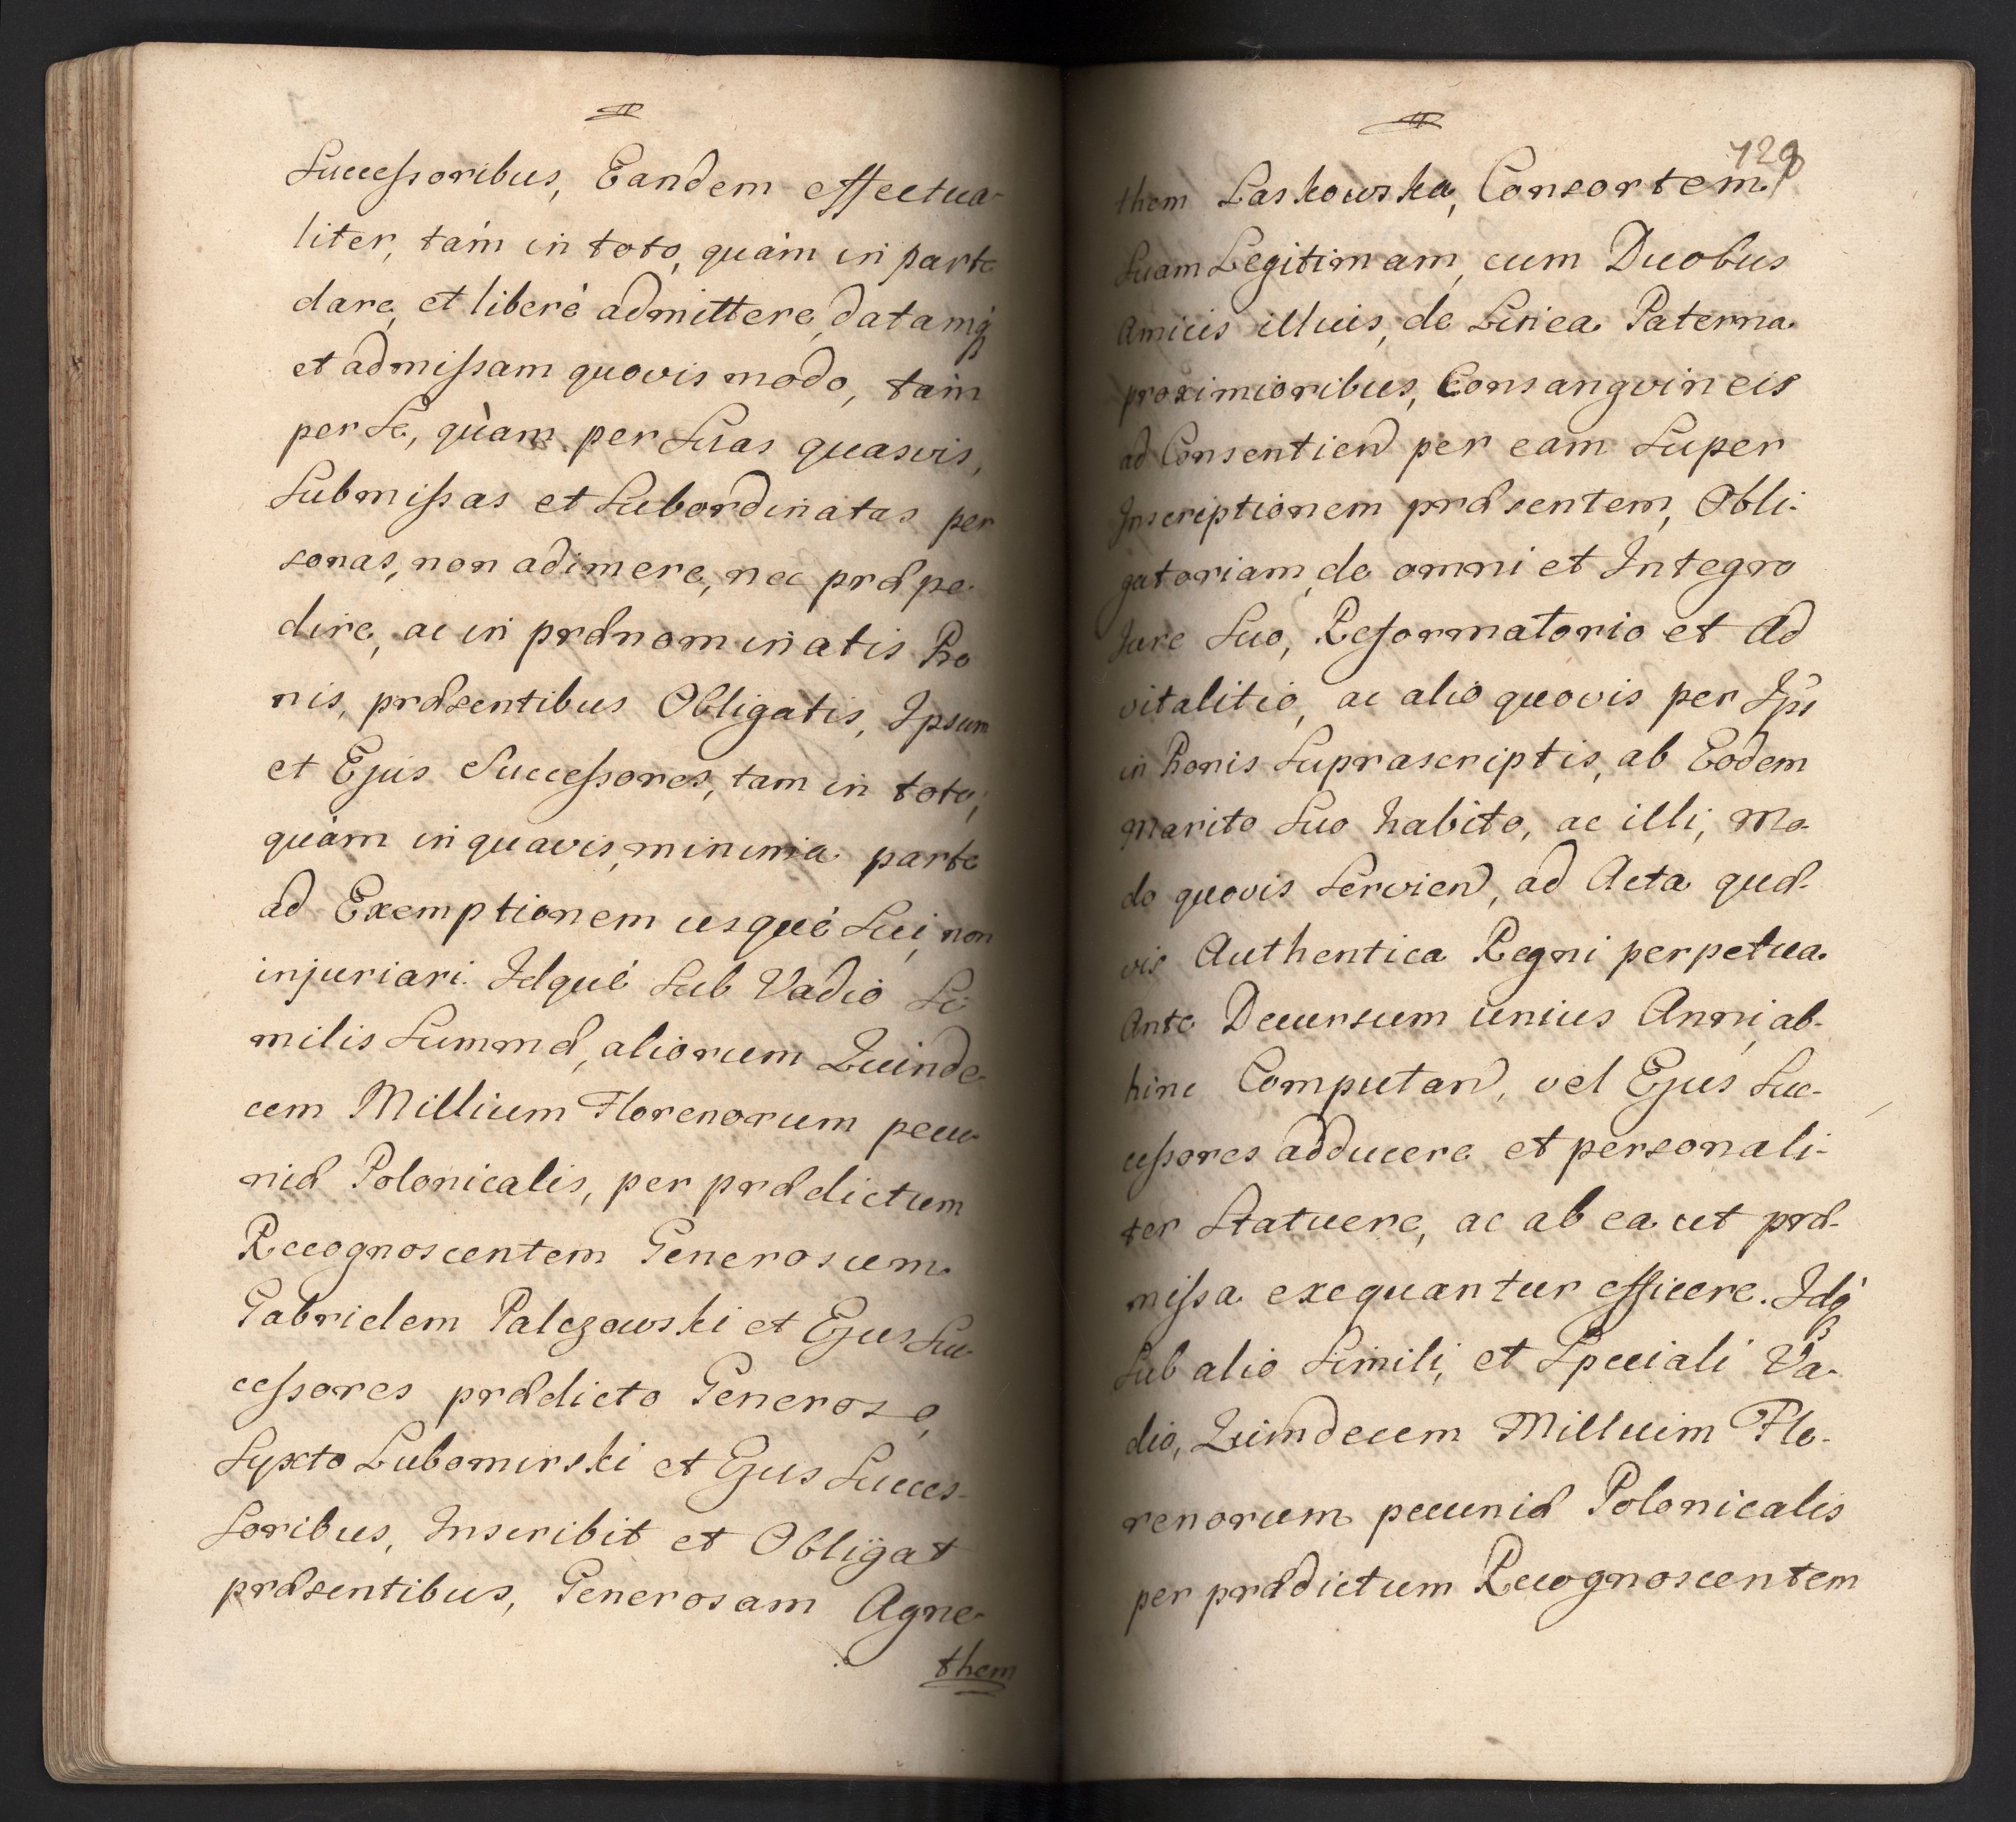 Successoribus, Eandem effectua-
liter, tám in toto, quám in parte
dare, et liberé admittere, datamq́
et admissam quovis modo, tám
per Se, quàm per Suas quasvis,
Submissas et Subordinatas per
sonas, non adimere, nec præpe-
dire, ac in prænominatis Bo
nis, præsentibus Obligatis, Ipsum
et Ejus Successores, tam in toto,
quám in quavis, minima parte
ad Exemptionem usqué Sui, non
injuriari. Idqué Sub Vadio Si-
milis Summæ, aliorum Quinde-
cem Millium Florenorum pecu-
niæ Polonicalis, per prædictum
Recognoscentem Generosum
Gabrielem Palczowski et Ejus Suc-
cessores prædicto Generoso,
Syxto Lubomirski et Ejus Succes-
soribus, Inscribit et Obligat
præsentibus, Generosam Agne-
them
129
them Laskowska, Consortem
Suam Legitimam, cum Duobus
Amicis illius, de Linea Paterna
proximioribus, Consangvineis
ad Consentiend per eam Super
Inscriptionem præsentem, Obli-
gatoriam, de omni et Integro
Jure Suo, Reformatorio et Ad
vitalitio, ac alio quovis per Ips
in Bonis Suprascriptis, ab Eodem
Marito Suo habito, ac illi, Mo-
do quovis Servien, ad Acta quæ-
vis Authentica Regni perpetua
Ante Decursum unius Anni, ab-
hinc Computan, vel Ejus Suc-
cessores adducere et personali-
ter Statuere, ac ab ea ut præ-
missa exequantur efficere. Idq́
Sub alio Simili, et Speciali Va-
dio, Quindecem Millium Flo-
renorum pecuniæ Polonicalis
per prædictum Recognoscentem